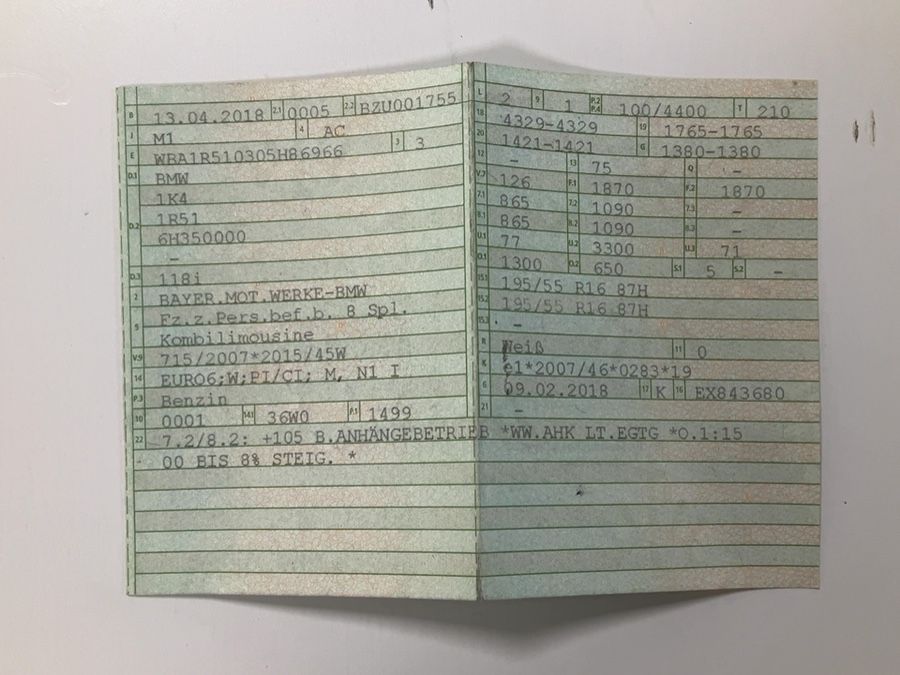 B 13.04.2018 2.1 0005 2.2 BZU001755
J M1 4 AC
E WBA1R510305H86966 3 3
D.1 BMW
1K4
D.2 1R51
6H350000
-
D.3 118i
2 BAYER.MOT.WERKE-BMW
5 Fz.z.Pers.bef.b. 8 Spl.
Kombilimousine
V.9 715/2007*2015/45W
14 EURO6;W;PI/CI; M, N1 I
P.3 Benzin
10 0001 14.1 36W0 P.1 1499
22 7.2/8.2: +105 B.ANHÄNGEBETRIEB *WW.AHK LT.EGTG *O.1:15
00 BIS 8% STEIG. *
L 2 9 1 P.2 P.4 100/4400 T 210
18 4329-4329 19 1765-1765
20 1421-1421 G 1380-1380
12 - 13 75 Q -
V.7 126 F.1 1870 F.2 1870
7.1 865 7.2 1090 7.3 -
8.1 865 8.2 1090 8.3 -
U.1 77 U.2 3300 U.3 71
O.1 1300 O.2 650 S.1 5 S.2 -
15.1 195/55 R16 87H
15.2 195/55 R16 87H
15.3 -
R Weiß 11 0
K e1*2007/46*0283*19
6 09.02.2018 17 K 16 EX843680
21 -